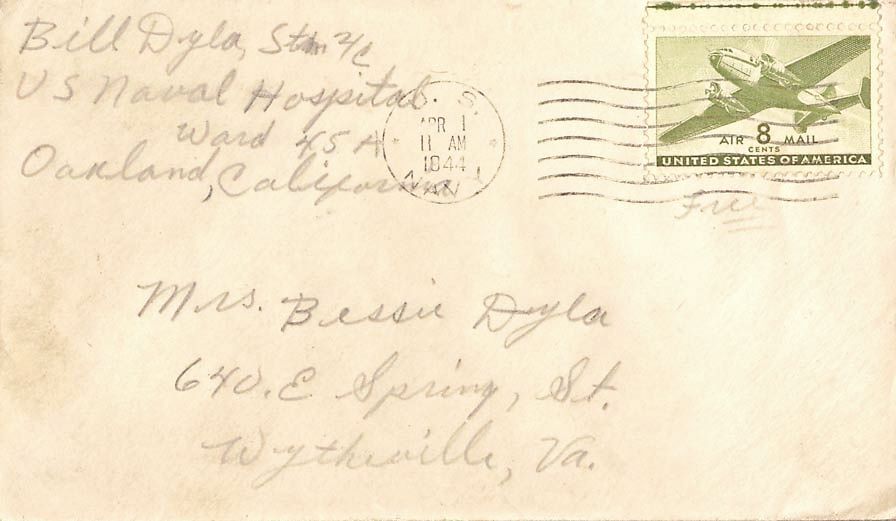 Bill Dyla, Stm 2/c
US Naval Hospital
Ward 45 A
Oakland, California
U. S.
APR 1
11 AM
1944
NAVY
AIR 8 MAIL
CENTS
UNITED STATES OF AMERICA
Free
Mrs. Bessie Dyla
640. E Spring, St.
Wytheville, Va.